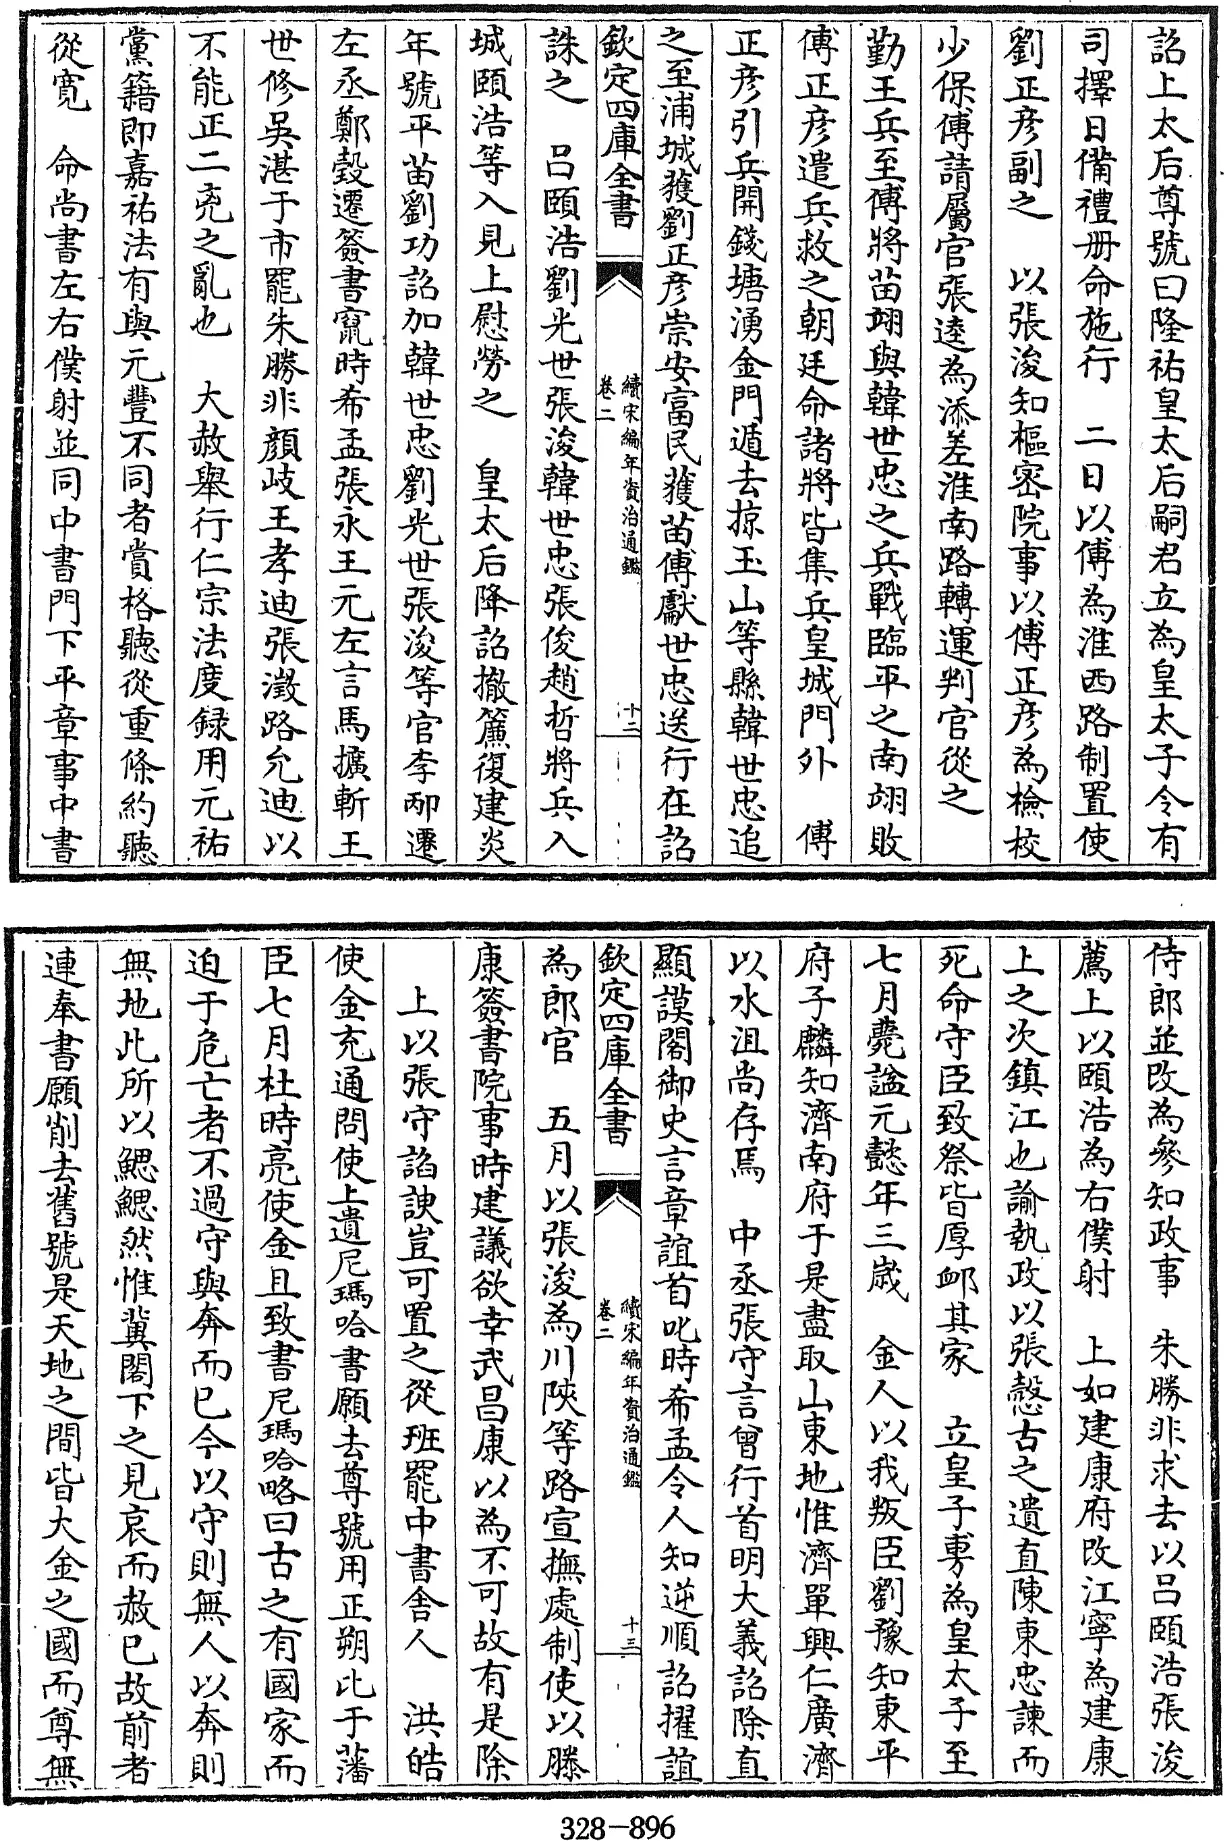 詔上太后尊號曰隆祐皇太后嗣君立為皇太子令有
司擇日備禮册命施行　二日以傅為淮西路制置使
劉正彦副之　以張浚知樞密院事以傅正彦為檢校
少保傅請屬官張逵為添差淮南路轉運判官從之
勤王兵至傅將苗翊與韓世忠之兵戰臨平之南翊敗
傅正彦遣兵救之朝廷命諸將皆集兵皇城門外　傅
正彦引兵開錢塘湧金門遁去掠玉山等縣韓世忠追
之至浦城獲劉正彦崇安富民獲苗傅獻世忠送行在詔
欽定四庫全書
續宋編年資治通鑑
卷二
十二
誅之　呂頤浩劉光世張浚韓世忠張俊趙哲將兵入
城頤浩等入見上慰勞之　皇太后降詔撤簾復建炎
年號平苗劉功詔加韓世忠劉光世張浚等官李邴遷
左丞鄭瑴遷簽書竄時希孟張永王元左言馬擴斬王
世修吳湛于市罷朱勝非顔歧王孝迪張澂路允迪以
不能正二兇之亂也　大赦舉行仁宗法度録用元祐
黨籍即嘉祐法有與元豐不同者賞格聽從重條約聽
從寛　命尚書左右僕射並同中書門下平章事中書
侍郎並改為參知政事　朱勝非求去以呂頤浩張浚
薦上以頤浩為右僕射　上如建康府改江寧為建康
上之次鎮江也諭執政以張慤古之遺直陳東忠諫而
死命守臣致祭皆厚卹其家　立皇子旉為皇太子至
七月薨諡元懿年三歳　金人以我叛臣劉豫知東平
府子麟知濟南府于是盡取山東地惟濟單興仁廣濟
以水沮尚存焉　中丞張守言曾行首明大義詔除直
顯謨閣御史言章誼首叱時希孟令人知逆順詔擢誼
欽定四庫全書
續宋編年資治通鑑
卷二
十三
為郎官　五月以張浚為川陜等路宣撫處制使以滕
康簽書院事時建議欲幸武昌康以為不可故有是除
上以張守諂諛豈可置之從班罷中書舍人　洪皓
使金充通問使上遺尼瑪哈書願去尊號用正朔比于藩
臣七月杜時亮使金且致書尼瑪哈略曰古之有國家而
迫于危亡者不過守與奔而已今以守則無人以奔則
無地此所以鰓鰓然惟冀閣下之見哀而赦已故前者
連奉書願削去舊號是天地之間皆大金之國而尊無
328-896